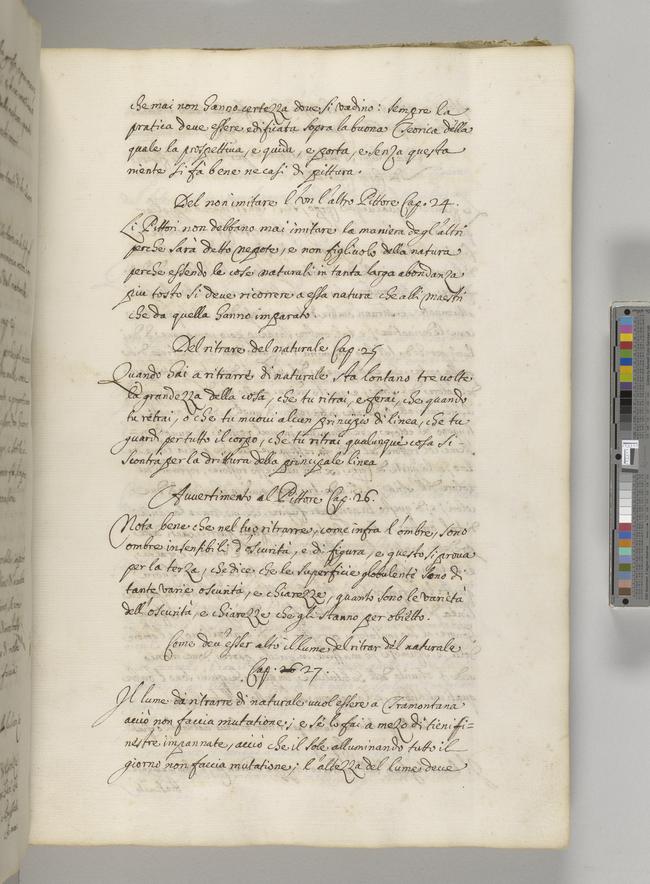 che mai non hanno certezza dove si vadino: sempre la
pratica deve essere edificata sopra la buona Teorica della
quale la prospettiva, e guida, e porta, e senza questa
niente si fà bene ne casi di pittura.
Del non imitare l'un l'altro Pittore Cap. 24.
Li Pittori non debbano mai imitare la maniera degl'altri
perche sarà detto nepote, e non figlivolo della natura
perche essendo le cose naturali in tanta larga abondanza
piu tosto si deve ricorrere a essa natura che alli maestri
che da quella hanno imparato.
Del ritrare del naturale Cap. 25
Quando hai a ritrarre di naturale sta lontano tre volte
la grandezza della cosa, che tu ritrai, e ferai, che quando
tu retrai, o che tu muovi alcun principio di linea, che tu
guardi per tutto il corpo, che tu ritrai qualunque cosa si
scontra per la drittura della principale linea
Avvertimento al Pittore Cap. 26.
Nota bene che nel tuo ritrarre, come infra l'ombre, sono
ombre insensibili d'oscurità, e di figura, e questo si prova
per la terza, che dice che le superficie globulenti sono di
tante varie oscurità, e chiarezze, quanto sono le varietà
dell'oscurità, e chiarezze che gli stanno per obietto.
Come dev'esser alto il lume del ritrar del naturale
Cap. 26 27.
Il lume da ritrarre di naturale vuol essere a Tramontana
acciò non faccia mutatione; e se lo fai a mezo dì tieni fi=
nestre impannate, acciò che il sole alluminando tutto il
giorno non faccia mutatione; l'altezza del lume deve